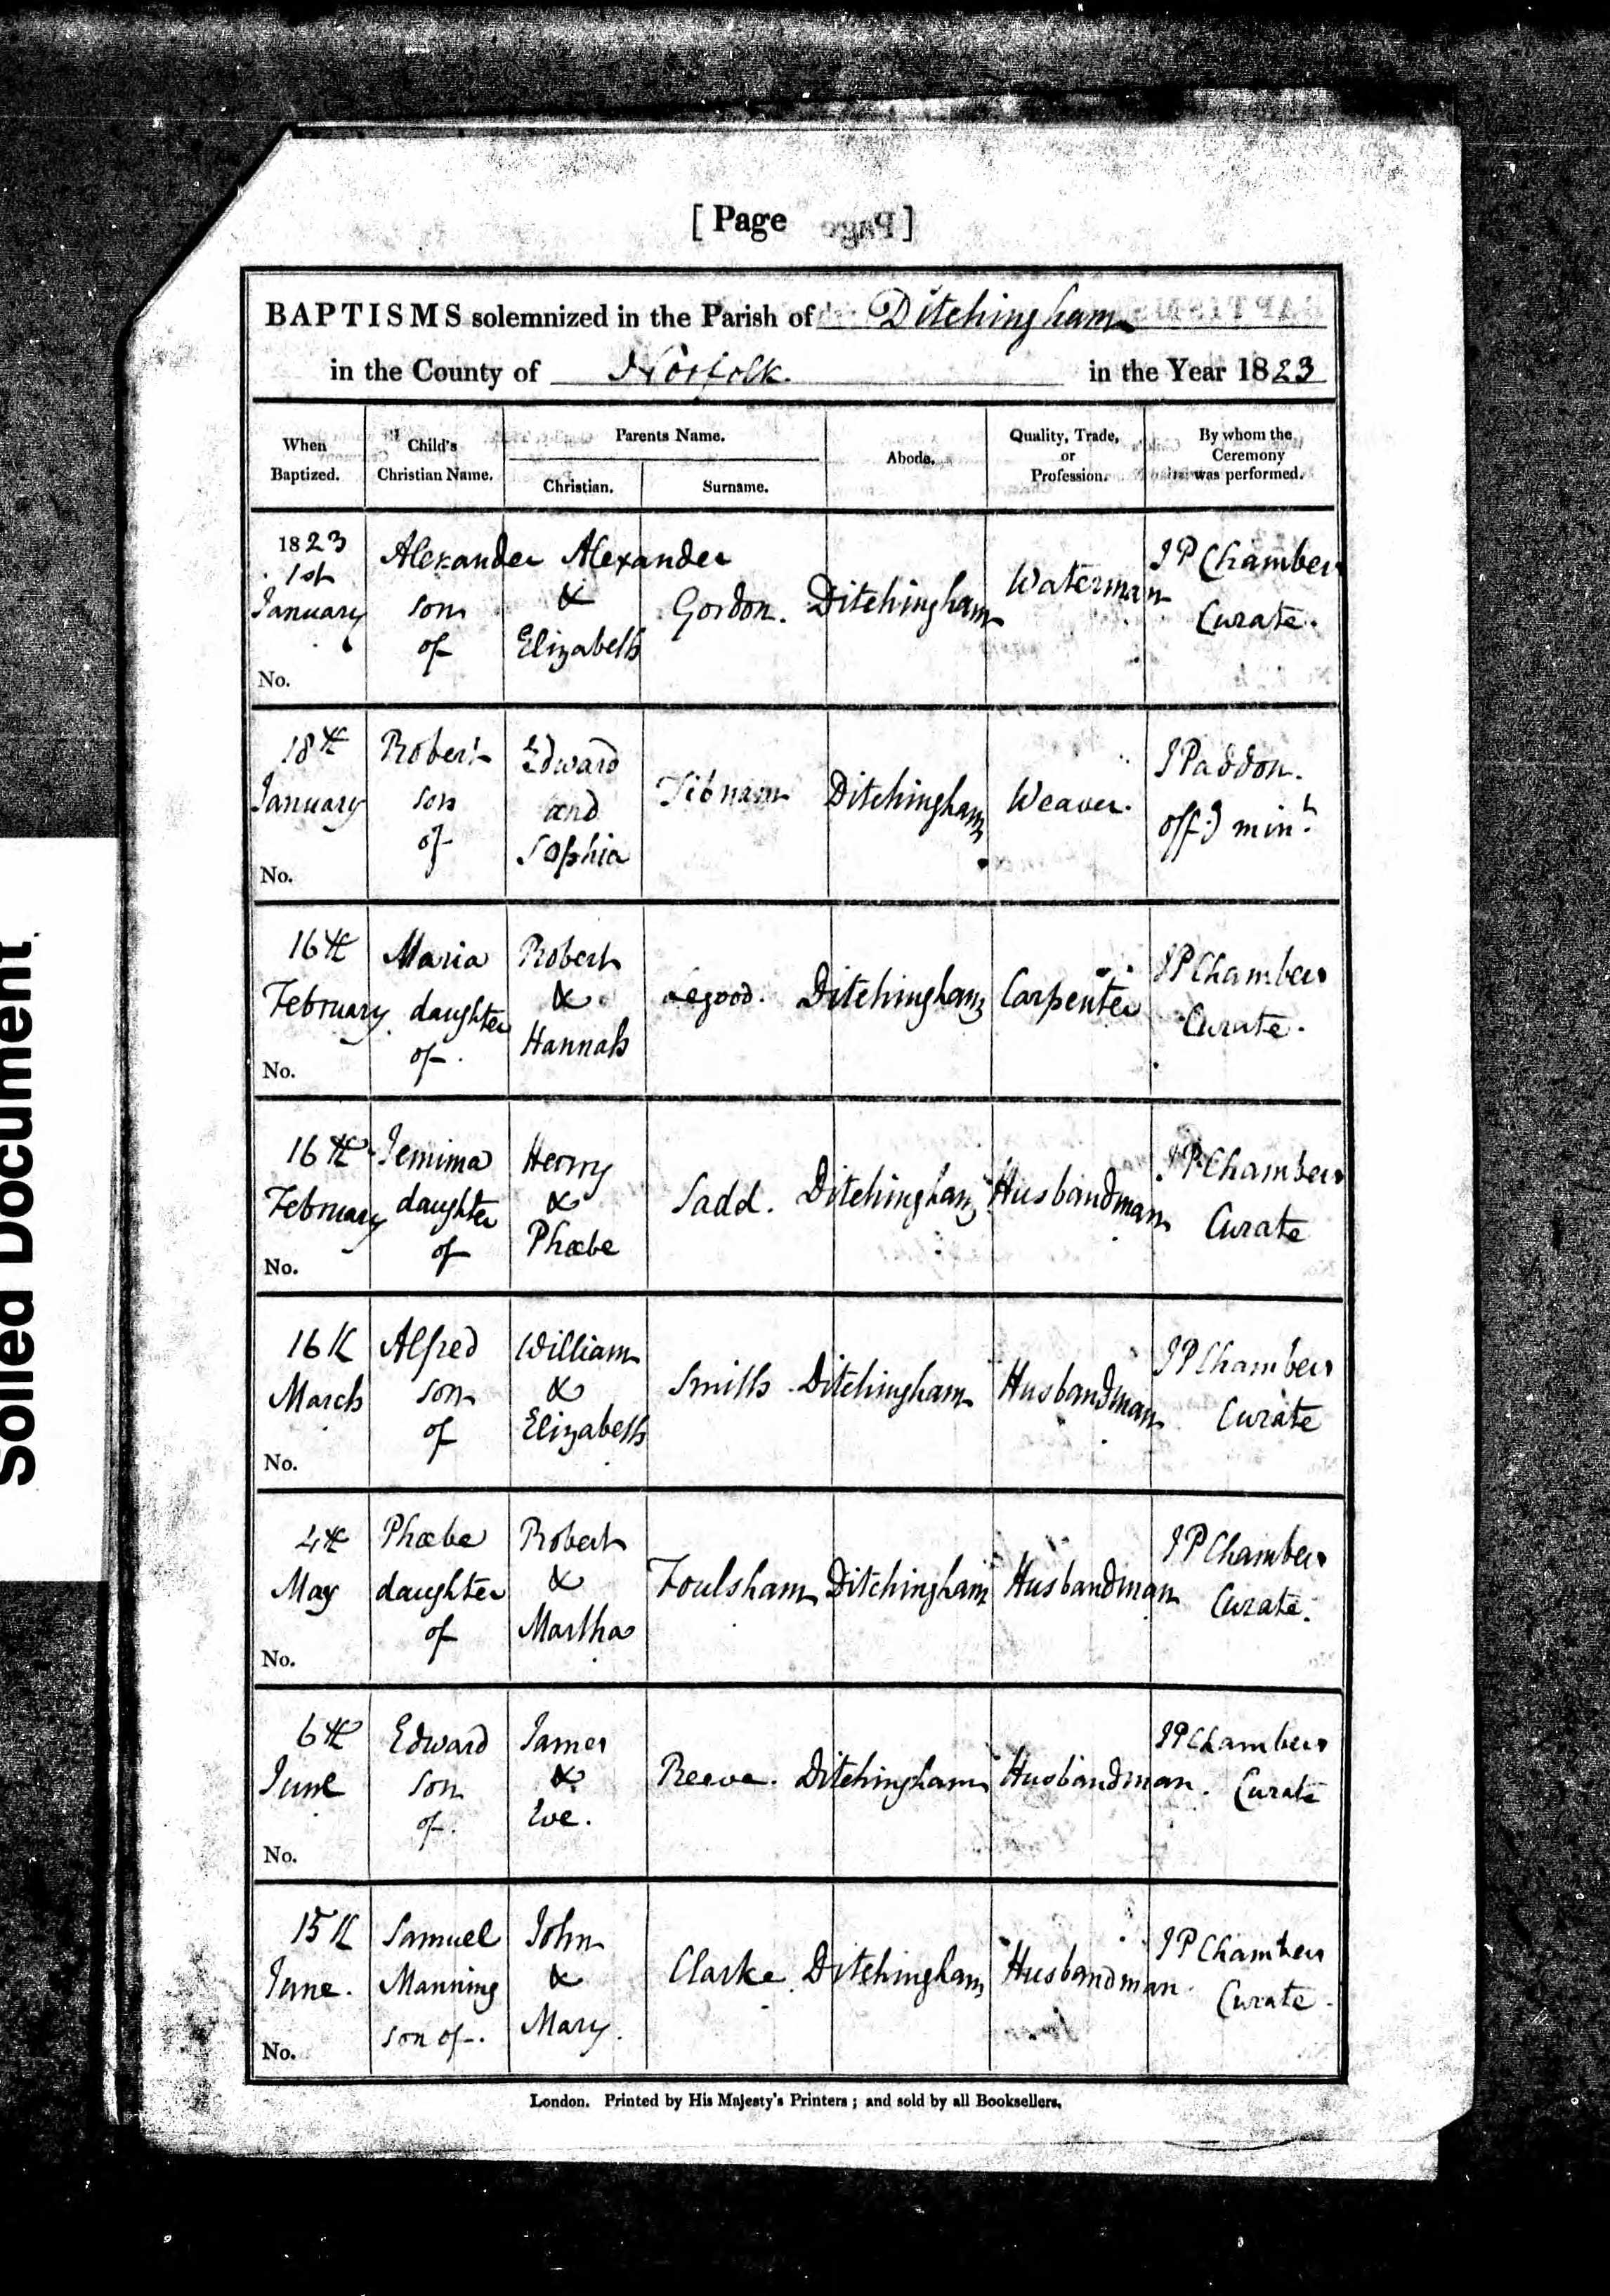 [ Page ]
BAPTISMS solemnized in the Parish of Ditchingham
in the County of Norfolk. in the Year 1823
When Baptized.
Child's Christian Name.
Parents Name.
Christian.
Surname.
Abode.
Quality, Trade, or Profession.
By whom the Ceremony was performed.
1823
1st
January
No.
Alexander
son
of
Alexander
&
Elizabeth
Gordon.
Ditchingham
Waterman
J P Chambers
Curate.
18th
January
No.
Robert
son
of
Edward
and
Sophia
Ditchingham
Weaver.
J Paddon.
off:g min:r
16th
February
No.
Maria
daughter
of
Robert
&
Hannah
Legood.
Ditchingham
Carpenter
J P Chambers
Curate.
16th
February
No.
Jemima
daughter
of
Henry
&
Phœbe
Sadd.
Ditchingham
Husbandman
J P Chambers
Curate
16th
March
No.
Alfred
son
of
William
&
Elizabeth
Smith
Ditchingham
Husbandman
J P Chambers
Curate
4th
May
No.
Phœbe
daughter
of
Robert
&
Martha
Foulsham
Ditchingham
Husbandman
J P Chambers
Curate.
6th
June
No.
Edward
son
of.
James
&
Eve.
Reeve.
Ditchingham
Husbandman.
J P Chambers
Curate
15th
June.
No.
Samuel
Manning
son of.
John
&
Mary.
Clarke.
Ditchingham
Husbandman.
J P Chambers
Curate.
London. Printed by His Majesty's Printers; and sold by all Booksellers.
Soiled Document